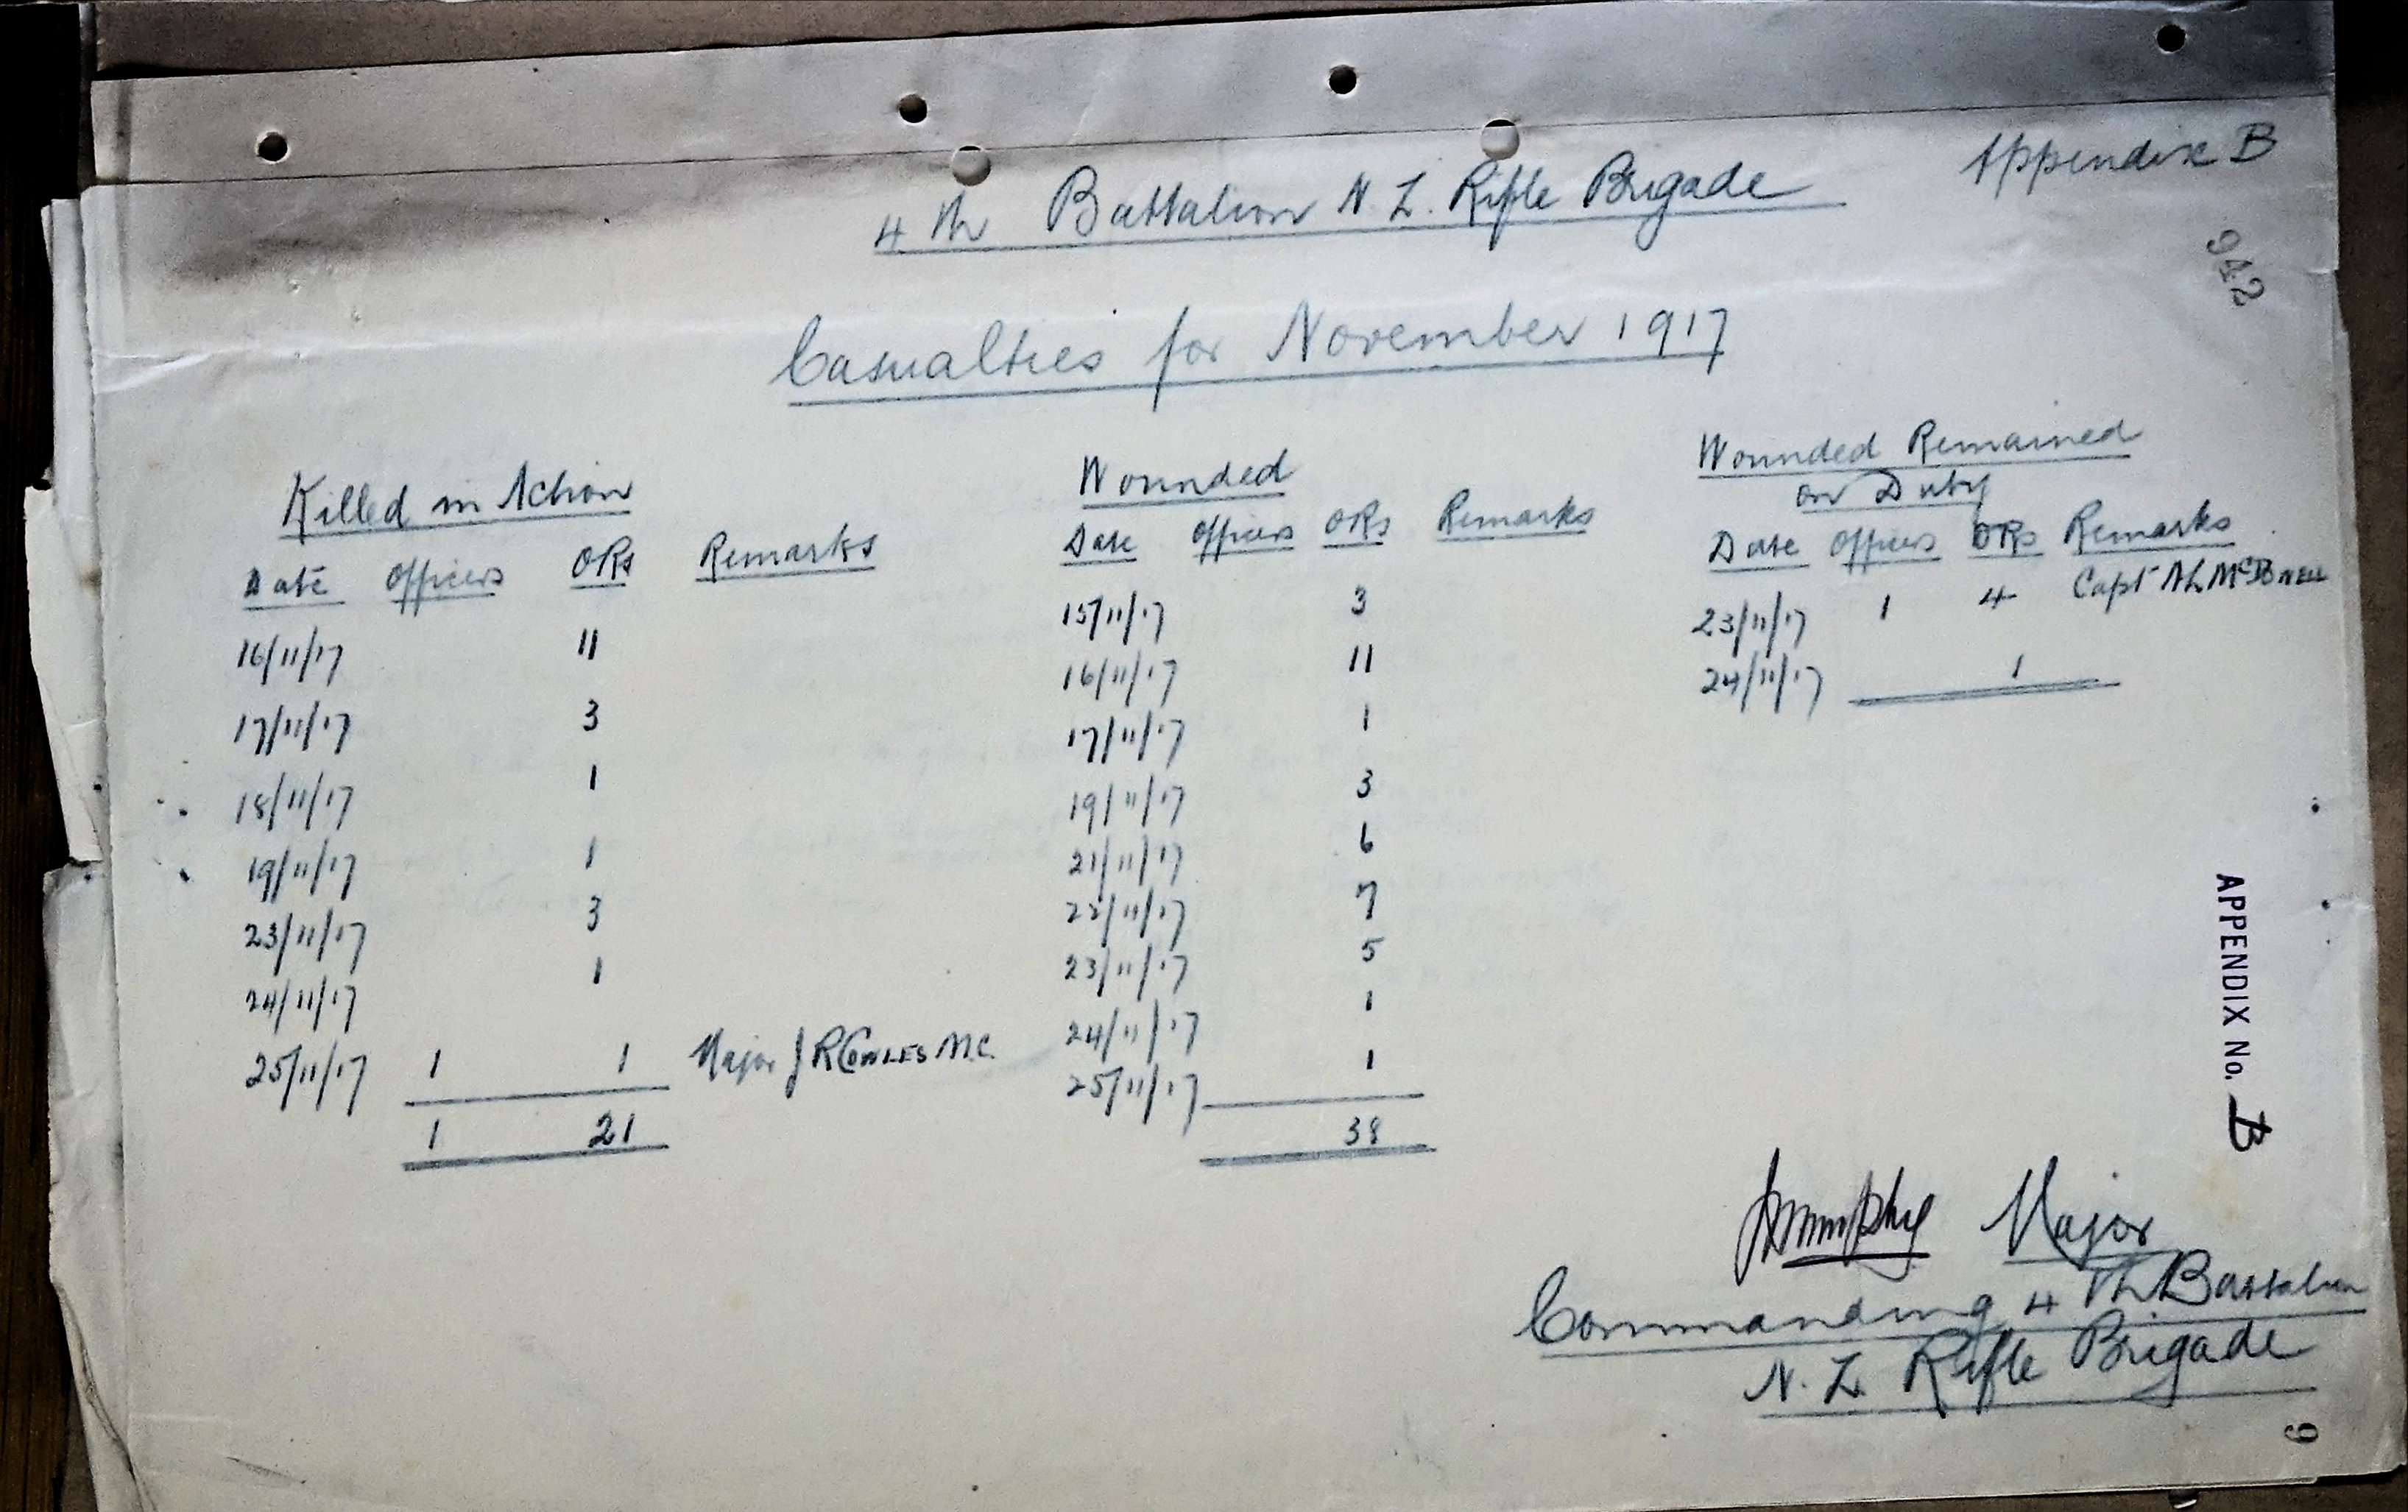 Appendix B
4th Battalion N.Z. Rifle Brigade
942
Casualties for November 1917
Killed in Action
Date Officers ORs Remarks
16/11/17 11
17/11/17 3
18/11/17 1
19/11/17 1
23/11/17 3
24/11/17 1
25/11/17 1 1 Major J R Cowles M.C.
1 21
Wounded
Date Officers ORs Remarks
15/11/17 3
16/11/17 11
17/11/17 1
19/11/17 3
21/11/17 6
22/11/17 7
23/11/17 5
24/11/17 1
25/11/17 1
38
Wounded Remained
on Duty
Date Officers ORs Remarks
23/11/17 1 4 Capt
24/11/17 1
APPENDIX No. B
Major
Commanding 4th Battalion
N.Z. Rifle Brigade
9